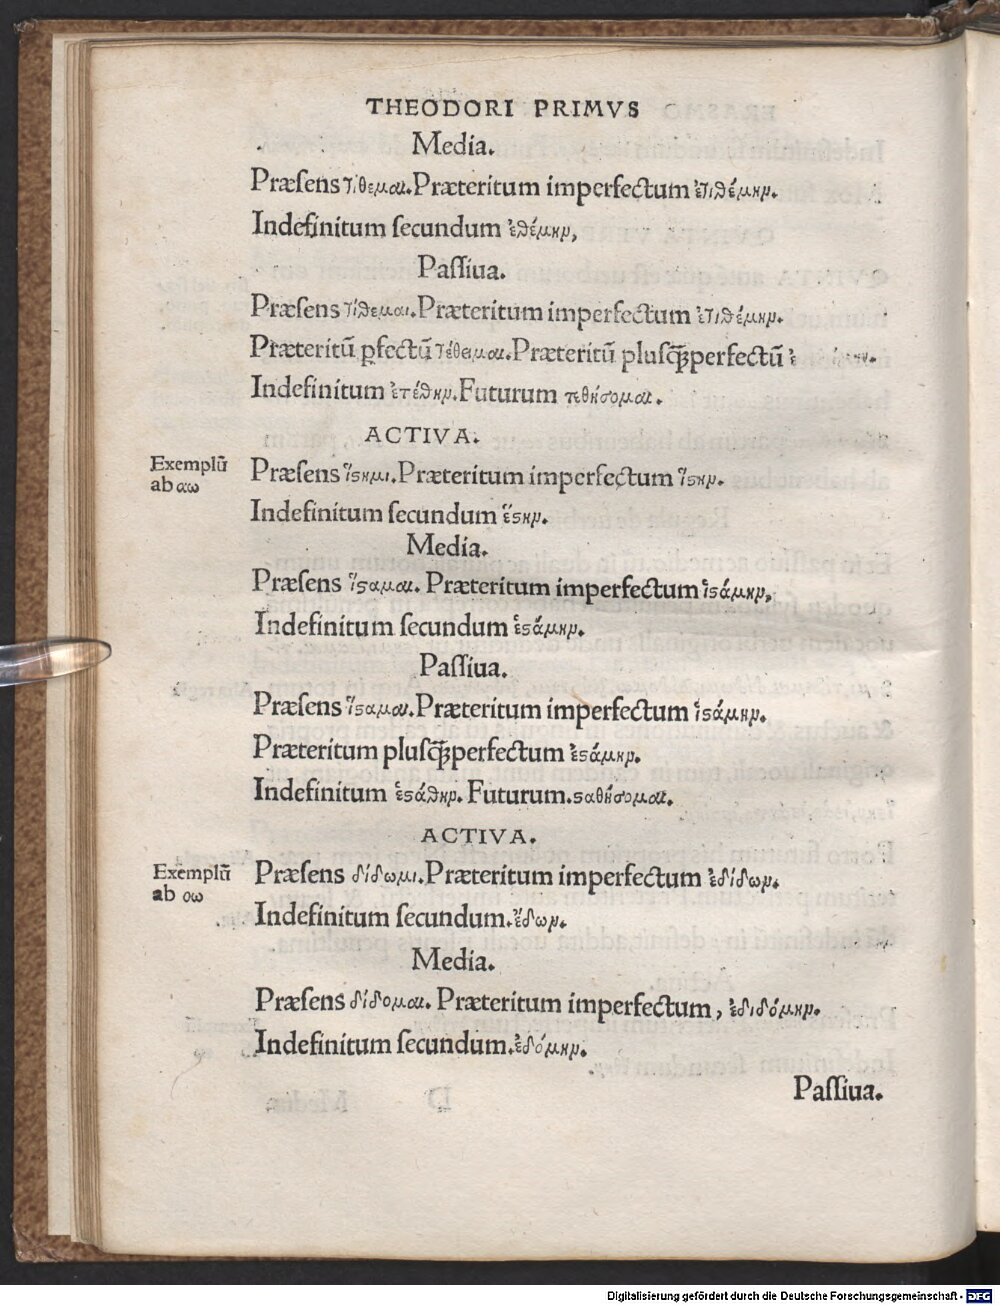 THEODORI PRIMVS
Media.
Præſens τίθεμαι. Præteritum imperfectum ἐτιθέμην.
Indefinitum ſecundum ἐθέμην,
Paſſiua.
Præſens τίθεμαι. Præteritum imperfectum ἐτιθέμην.
Præteritū ꝑfectū τέθειμαι. Præteritū pluſꝙ̃perfectū
Indefinitum ἐτέθην. Futurum τεθήσομαι.
ACTIVA.
Exemplū
ab αω
Præſens ἵϛημι. Præteritum imperfectum ἵϛην.
Indefinitum ſecundum ἔϛην.
Media.
Præſens ἵϛαμαι. Præteritum imperfectum ἱϛάμην,
Indefinitum ſecundum ἐϛάμην.
Paſſiua.
Præſens ἵϛαμαι. Præteritum imperfectum ἱϛάμην.
Præteritum pluſꝙ̃perfectum ἐϛάμην.
Indefinitum ἐϛάθην. Futurum. ϛαθήσομαι.
ACTIVA.
Exemplū
ab οω
Præſens δίδωμι. Præteritum imperfectum ἐδίδων.
Indefinitum ſecundum. ἔδων.
Media.
Præſens δίδομαι. Præteritum imperfectum, ἐδιδόμην.
Indefinitum ſecundum. ἐδόμην.
Paſſiua.
Digitalisierung gefördert durch die Deutsche Forschungsgemeinschaft - DFG